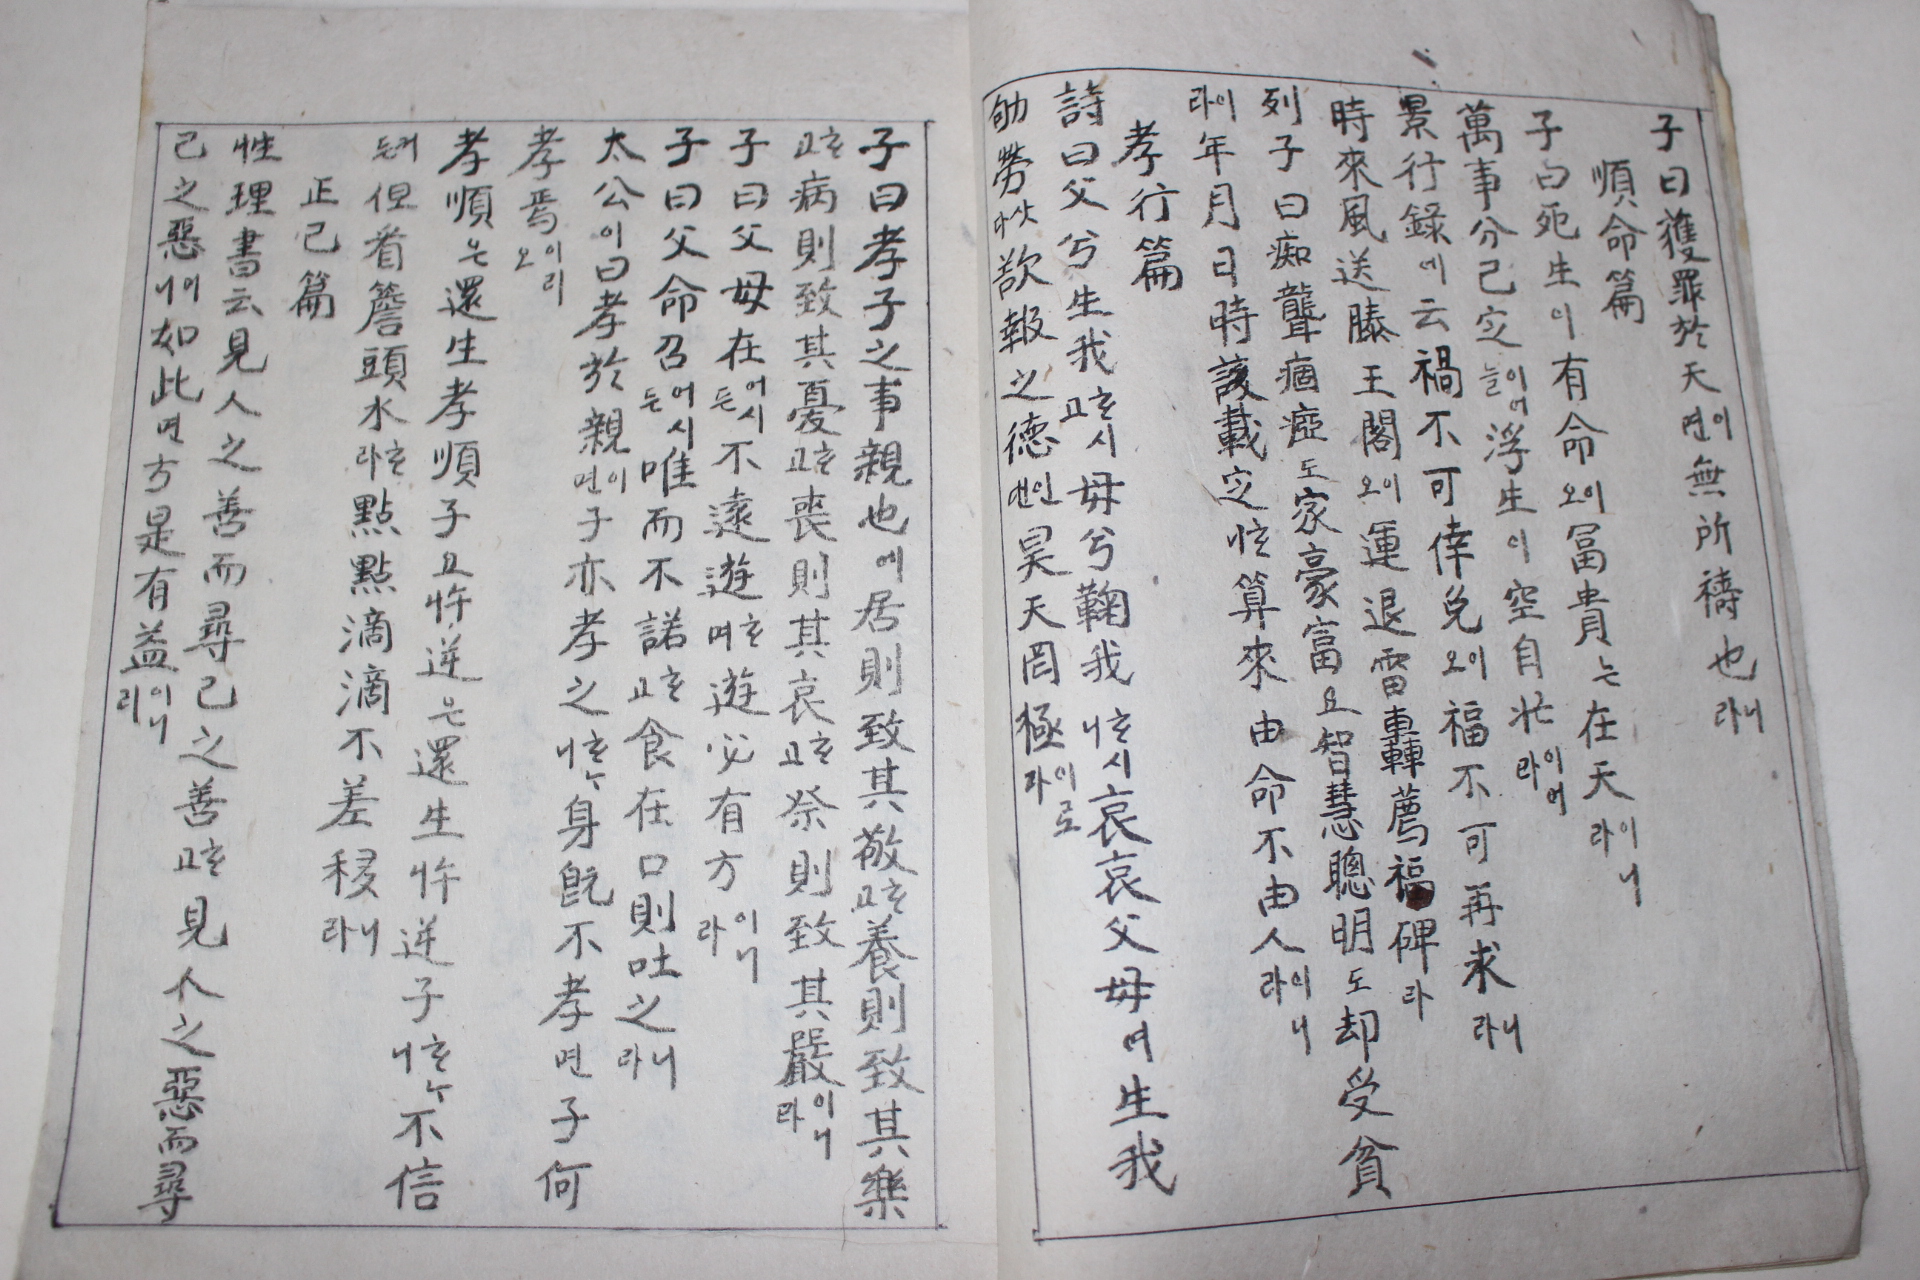 子曰獲罪於天이면無所禱也니라
順命篇
子曰死生이有命이오冨貴는在天이니라
萬事分已定이어늘浮生이空自忙이어라
景行錄에云禍不可倖免이오福不可再求니라
時來風送滕王閣이오運退雷轟薦福碑라
列子曰痴聾痼瘂도家豪富요智慧聰明도却受貧
이라年月日時該載定ᄒᆞ니算來由命不由人이니라
孝行篇
詩曰父兮生我ᄒᆞ시고母兮鞠我ᄒᆞ시니哀哀父母여生我
劬勞삿다欲報之德인댄昊天罔極이로다
子曰孝子之事親也에居則致其敬ᄒᆞ고養則致其樂
ᄒᆞ고病則致其憂ᄒᆞ고喪則其哀ᄒᆞ고祭則致其嚴이니라
子曰父母在어시든不遠遊ᄒᆞ며遊必有方이니라
子曰父命召어시든唯而不諾ᄒᆞ고食在口則吐之니라
太公이曰孝於親이면子亦孝之ᄒᆞᄂᆞ니身旣不孝면子何
孝焉이리오
孝順은還生孝順子요忤逆은還生忤逆子ᄒᆞᄂᆞ니不信
커든但看簷頭水ᄒᆞ라點點滴滴不差移니라
正己篇
性理書云見人之善而尋己之善ᄒᆞ고見人之惡而尋
己之惡이니如此면方是有益이니라